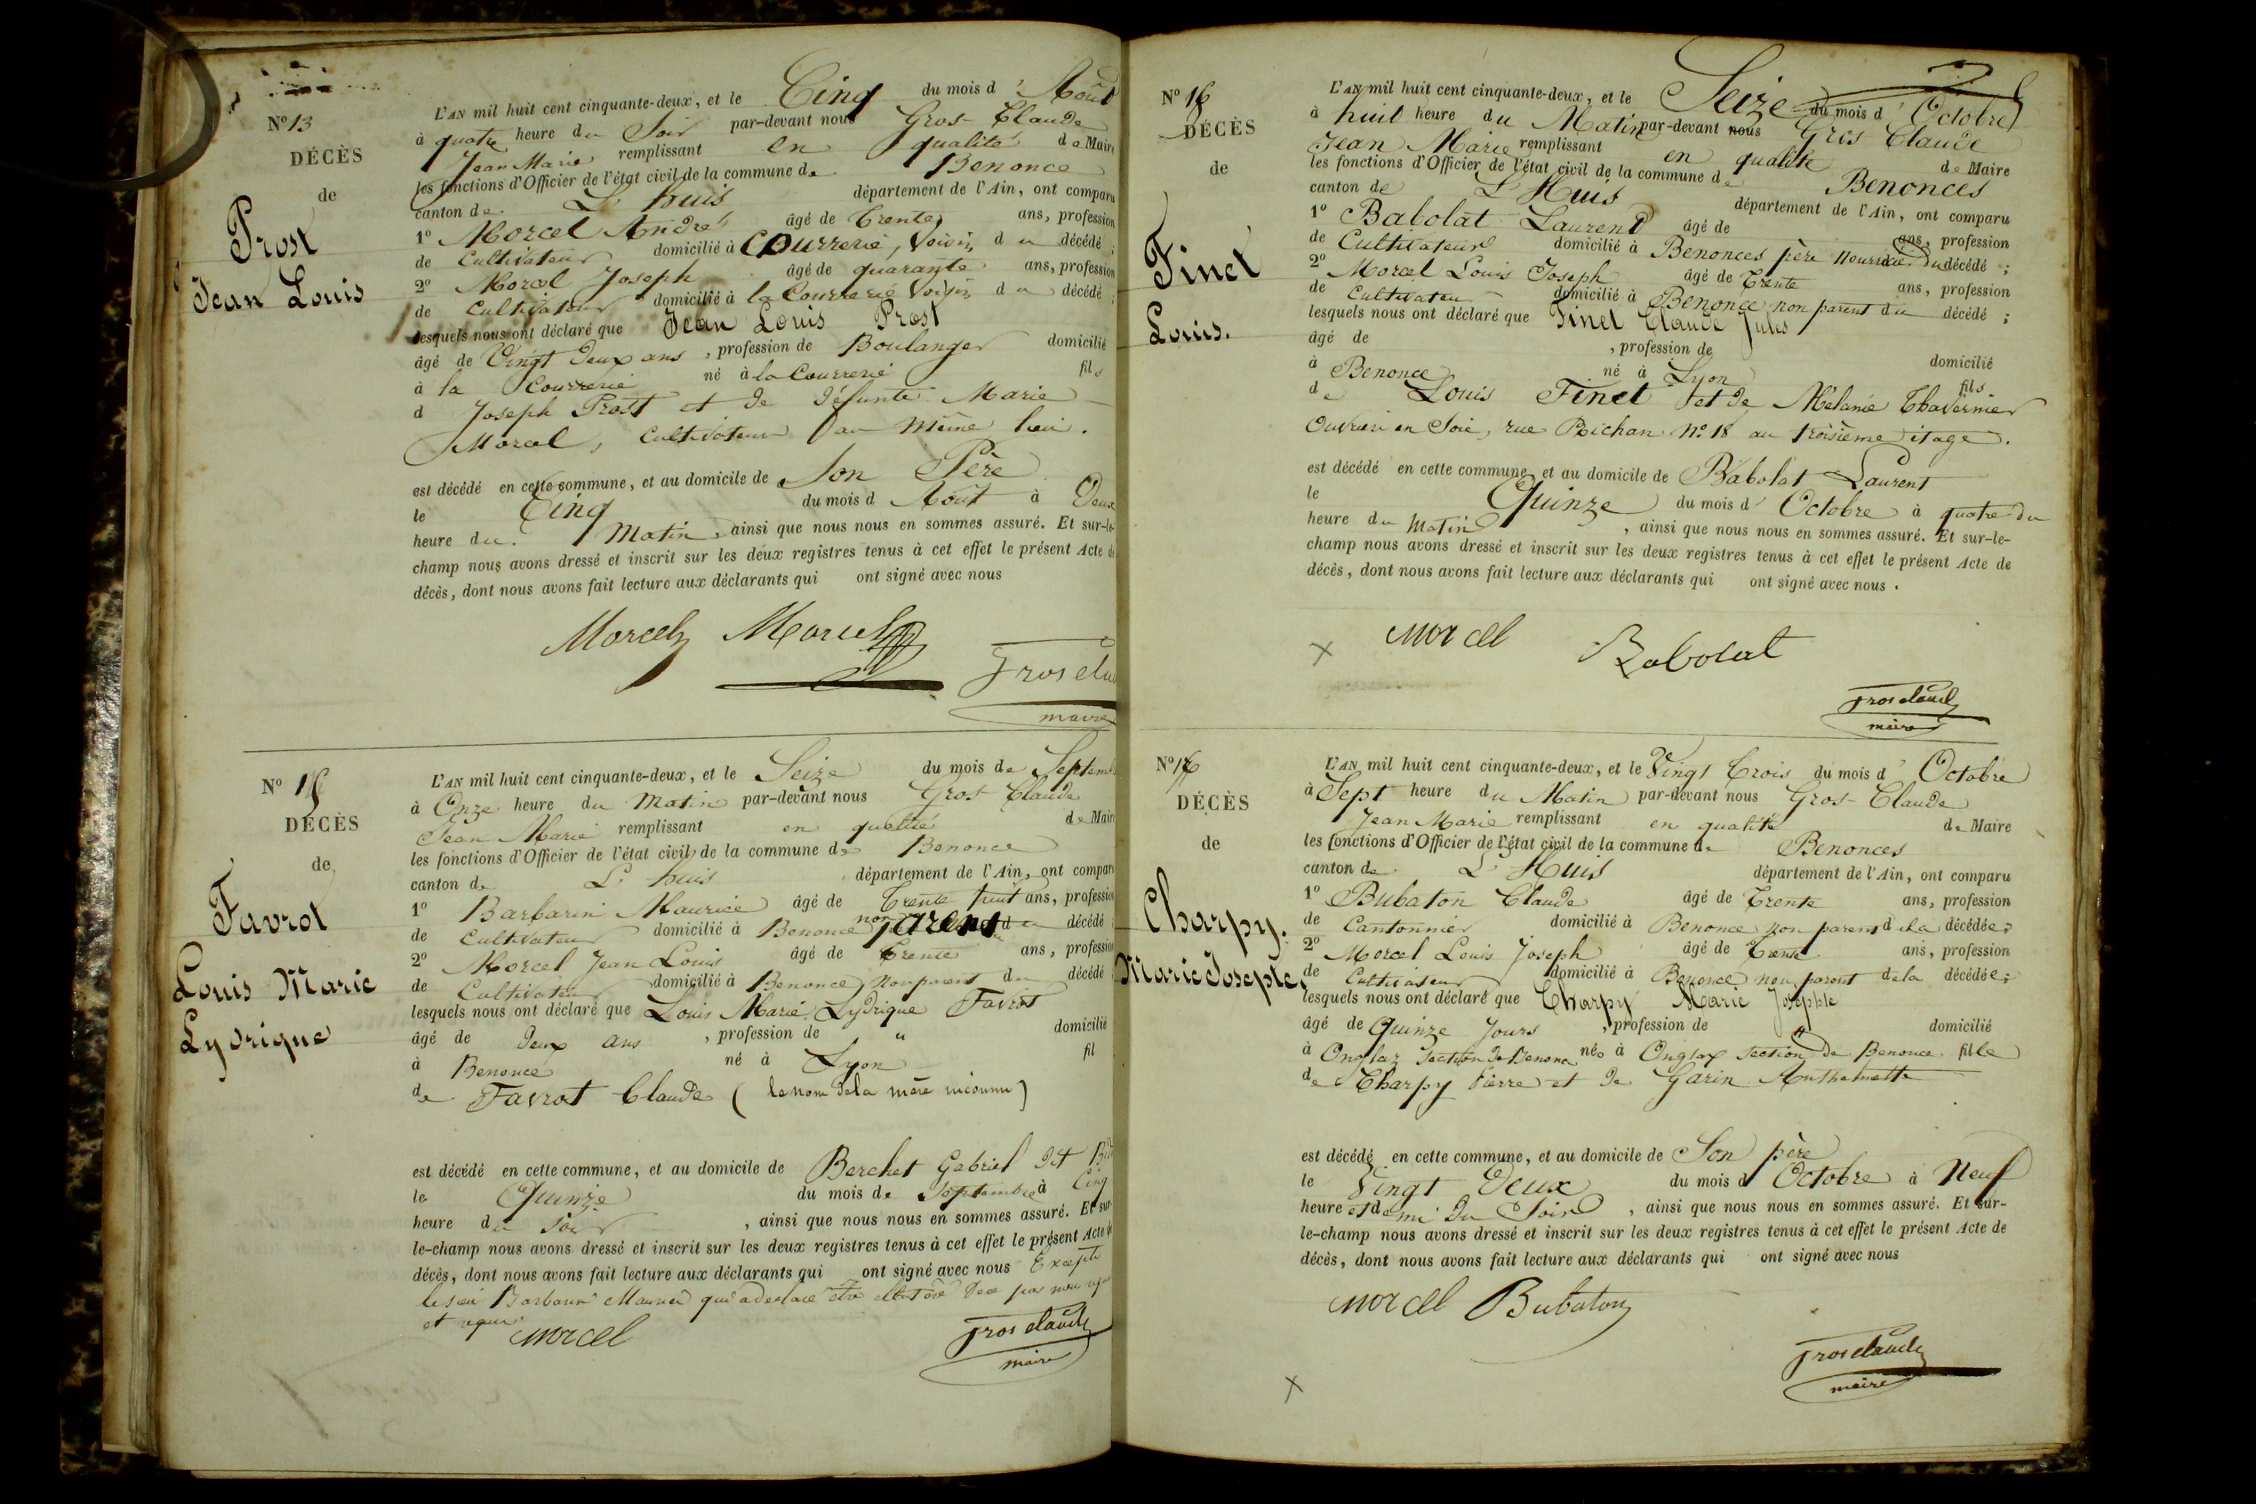 N° 13
DÉCÈS
de
Prost
Jean Louis
L'AN mil huit cent cinquante-deux, et le Cinq du mois d'Août
à quatre heure du Soir par-devant nous Gros-Claude
Jean Marie remplissant en qualité de Maire
les fonctions d'Officier de l'état civil de la commune de Benonce
canton de L'huis département de l'Ain, ont comparu
1° Morcel André âgé de Trente ans, profession
de Cultivateur domicilié à Courrerie, Voisin du décédé ;
2° Morcel Joseph âgé de quarante ans, profession
de Cultivateur domicilié à la Courrerie Voisin du décédé ;
lesquels nous ont déclaré que Jean Louis Prost
âgé de Vingt deux ans, profession de Boulanger domicilié
à la Courrerie né à la Courrerie fils
d Joseph Prost et de défunte Marie
Morcel, Cultivateur au même lieu.
est décédé en cette commune, et au domicile de Son Père
le Cinq du mois d Août à Deux
heure du Matin, ainsi que nous nous en sommes assuré. Et sur-le-
champ nous avons dressé et inscrit sur les deux registres tenus à cet effet le présent Acte de
décès, dont nous avons fait lecture aux déclarants qui ont signé avec nous
Morcel Morcel
Gros clau
maire
N°
DÉCÈS
de
Favrot
Louis Marie
Lydrique
L'AN mil huit cent cinquante-deux, et le Seize du mois de Septemb
à Onze heure du Matin par-devant nous Gros-Claude
Jean Marie remplissant en qualité de Maire
les fonctions d'Officier de l'état civil de la commune de Benonce
canton de L'huis département de l'Ain, ont comparu
1° Barbarin Maurice âgé de Trente huit ans, profession
de Cultivateur domicilié à Benonce non parent du décédé ;
2° Morcel Jean Louis âgé de Trente ans, profession
de Cultivateur domicilié à Benonce, Non parent du décédé
lesquels nous ont déclaré que Louis Marie Lydrique Favrot
âgé de Deux ans, profession de " domicilié
à Benonce né à Lyon fil
de Favrot Claude (le nom de la mère inconnu)
est décédé en cette commune, et au domicile de Berchet Gabriel dit
le Quinze du mois de Septembre à Cinq
heure du Soir, ainsi que nous nous en sommes assuré. Et sur-
le-champ nous avons dressé et inscrit sur les deux registres tenus à cet effet le présent Acte de
décès, dont nous avons fait lecture aux déclarants qui ont signé avec nous Excepté
le sieur Barbarin Maurice qui a déclaré
et
Morcel
Gros claude
maire
N°
DÉCÈS
de
Finet
Louis.
L'AN mil huit cent cinquante-deux, et le Seize du mois d'Octobre
à huit heure du Matin par-devant nous Gros Claude
Jean Marie remplissant en qualité de Maire
les fonctions d'Officier de l'état civil de la commune de Benonces
canton de L'Huis département de l'Ain, ont comparu
1° Babolat Laurent âgé de ans, profession
de Cultivateur domicilié à Benonces père nourricier du décédé ;
2° Morcel Louis Joseph âgé de Trente ans, profession
de Cultivateur domicilié à Benonce non parent du décédé ;
lesquels nous ont déclaré que Finet Claude Jules
âgé de , profession de domicilié
à Benonce né à Lyon fils
de Louis Finet et de Mélanie Thavernier
Ouvrier en Soie, rue Richan N° 18 au troisième étage.
est décédé en cette commune, et au domicile de Babolat Laurent
le Quinze du mois d'Octobre à quatre du
heure du Matin, ainsi que nous nous en sommes assuré. Et sur-le-
champ nous avons dressé et inscrit sur les deux registres tenus à cet effet le présent Acte de
décès, dont nous avons fait lecture aux déclarants qui ont signé avec nous.
Morcel Babolat
Gros claude
maire
N°
DÉCÈS
de
Charpy.
Marie Josepte,
L'AN mil huit cent cinquante-deux, et le Vingt Trois du mois d'Octobre
à Sept heure du Matin par-devant nous Gros-Claude
Jean Marie remplissant en qualité de Maire
les fonctions d'Officier de l'état civil de la commune de Benonces
canton de L'Huis département de l'Ain, ont comparu
1° Bubaton Claude âgé de Trente ans, profession
de Cantonnier domicilié à Benonce non parent de la décédée ;
2° Morcel Louis Joseph âgé de Trente ans, profession
de Cultivateur domicilié à Benonce non parent de la décédée ;
lesquels nous ont déclaré que Charpy Marie Josephte
âgé de Quinze Jours, profession de " domicilié
à Onglaz Section de Benonce née à Onglax Section de Benonce fille
de Charpy Pierre et de Garin Anthelmette
est décédé en cette commune, et au domicile de Son père
le Vingt Deux du mois d Octobre à Neuf
heure et demi du Soir, ainsi que nous nous en sommes assuré. Et sur-
le-champ nous avons dressé et inscrit sur les deux registres tenus à cet effet le présent Acte de
décès, dont nous avons fait lecture aux déclarants qui ont signé avec nous
Morcel Bubaton
Gros claude
maire